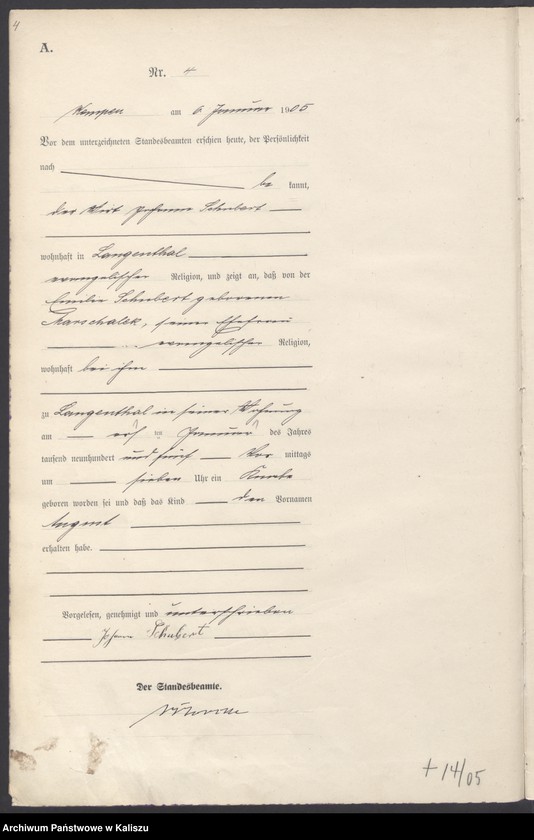 4
A.
Nr. 4
Kempen am 6. Januar 1905
Vor dem unterzeichneten Standesbeamten erschien heute, der Persönlichkeit
nach
be kannt,
der Wirt Johann Schubert
wohnhaft in Langenthal
evangelischer Religion, und zeigt an, daß von der
Emilie Schubert geborenen
Marschalek, seiner Ehefrau
evangelischer Religion,
wohnhaft bei ihm
zu Langenthal in seiner Wohnung
am ten Januar des Jahres
tausend neunhundert und fünf Vor mittags
um sieben Uhr ein Knabe
geboren worden sei und daß das Kind den Vornamen
August
erhalten habe.
Vorgelesen, genehmigt und unterschrieben
Johann Schubert
Der Standesbeamte.
+ 14/05
Archiwum Państwowe w Kaliszu